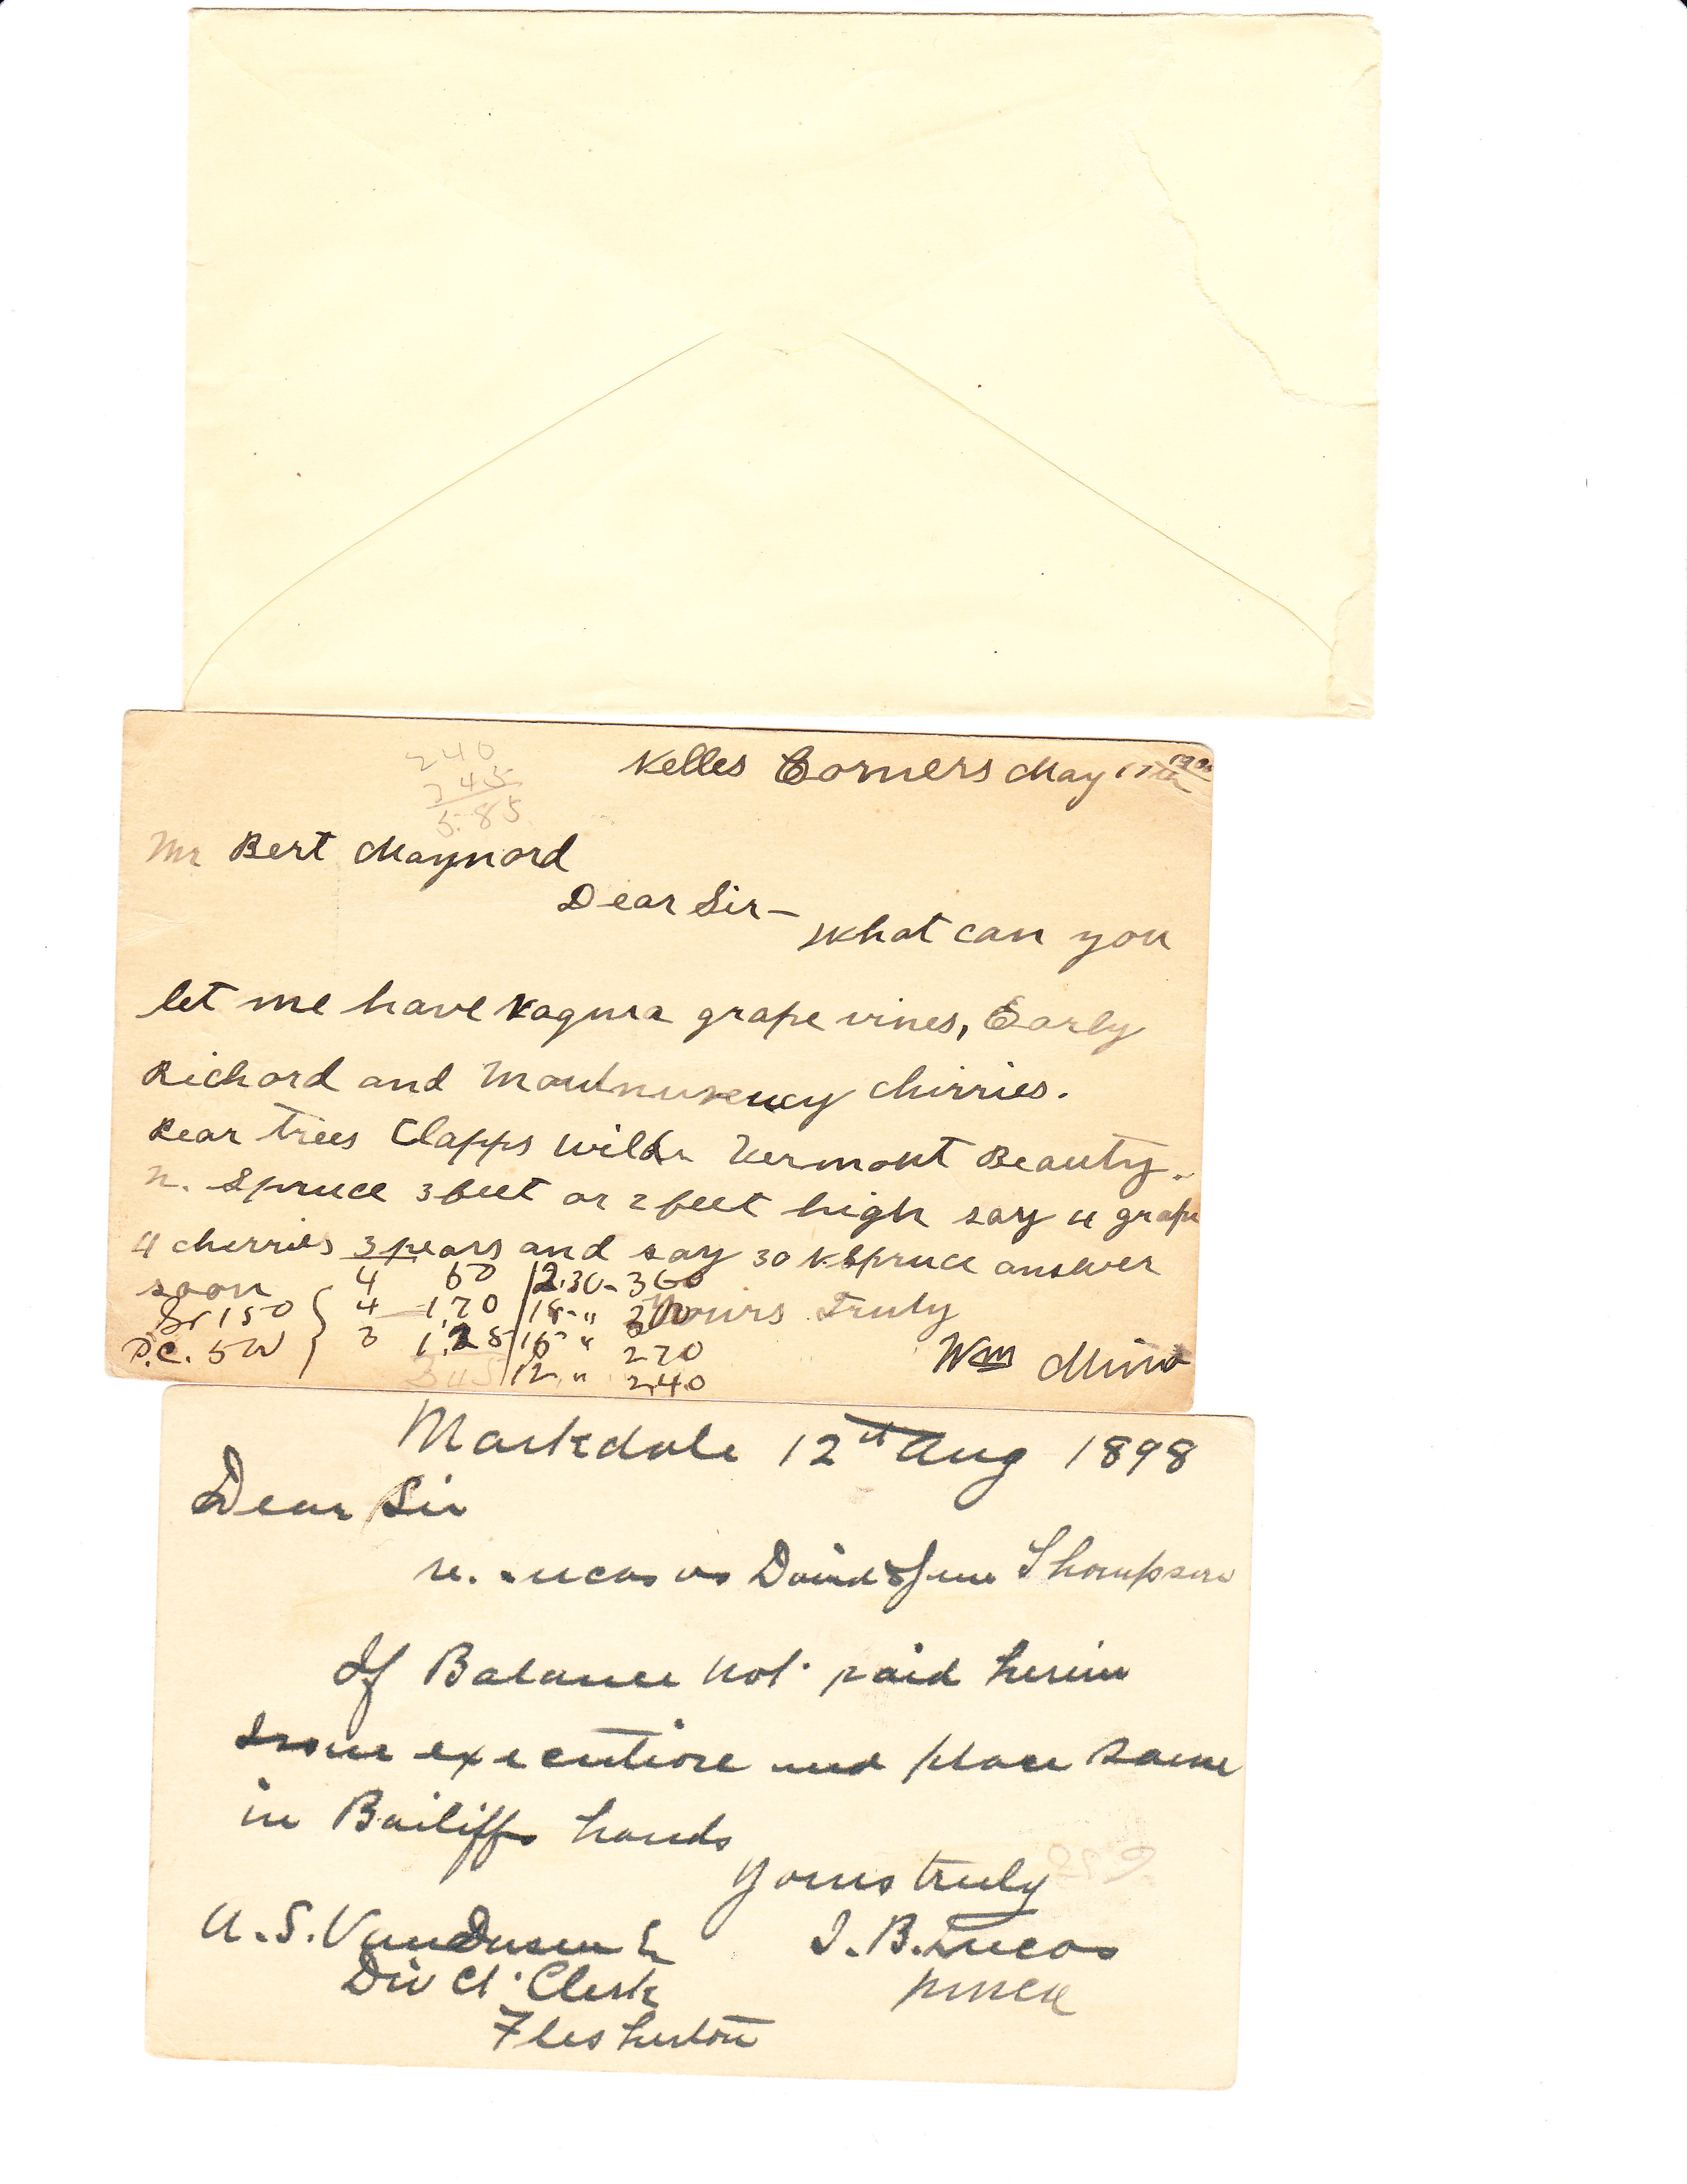 240
345
5.85
Kelles Corners May 17th
Mr Bert Maynord
Dear Sir —
what can you
let me have Nagura grape vines, Early
Richord and chirries.
Pear trees Clapps Wilder Vermont Beauty.
N. Spruce 3 feet or 2 feet high say 4 grape
4 cherries 3 pears and say 30 N Spruce answer
soon
4 60 2.30 - 360
Yours Truly
4 1,70 18 - " 300
Br 150
3 1.25 15 " 270
P.C. 50
345 12 " 2.40
Wm
Markdale 12th Aug 1898
Dear Sir
re. Lucas vs David & Jane Thompson
If Balance not paid herein
Issue execution and place same
in Bailiffs hands
Yours truly
A. S. VanDusen
I. B. Lucas
Div Ct. Clerk
Flesherton